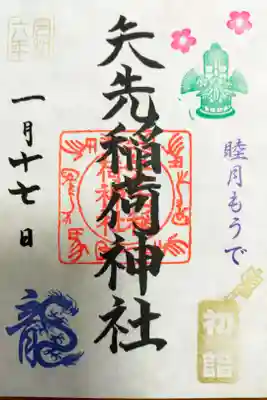 睦月もうで
初詣
矢先稲荷神社
六年
一月十七日
龍